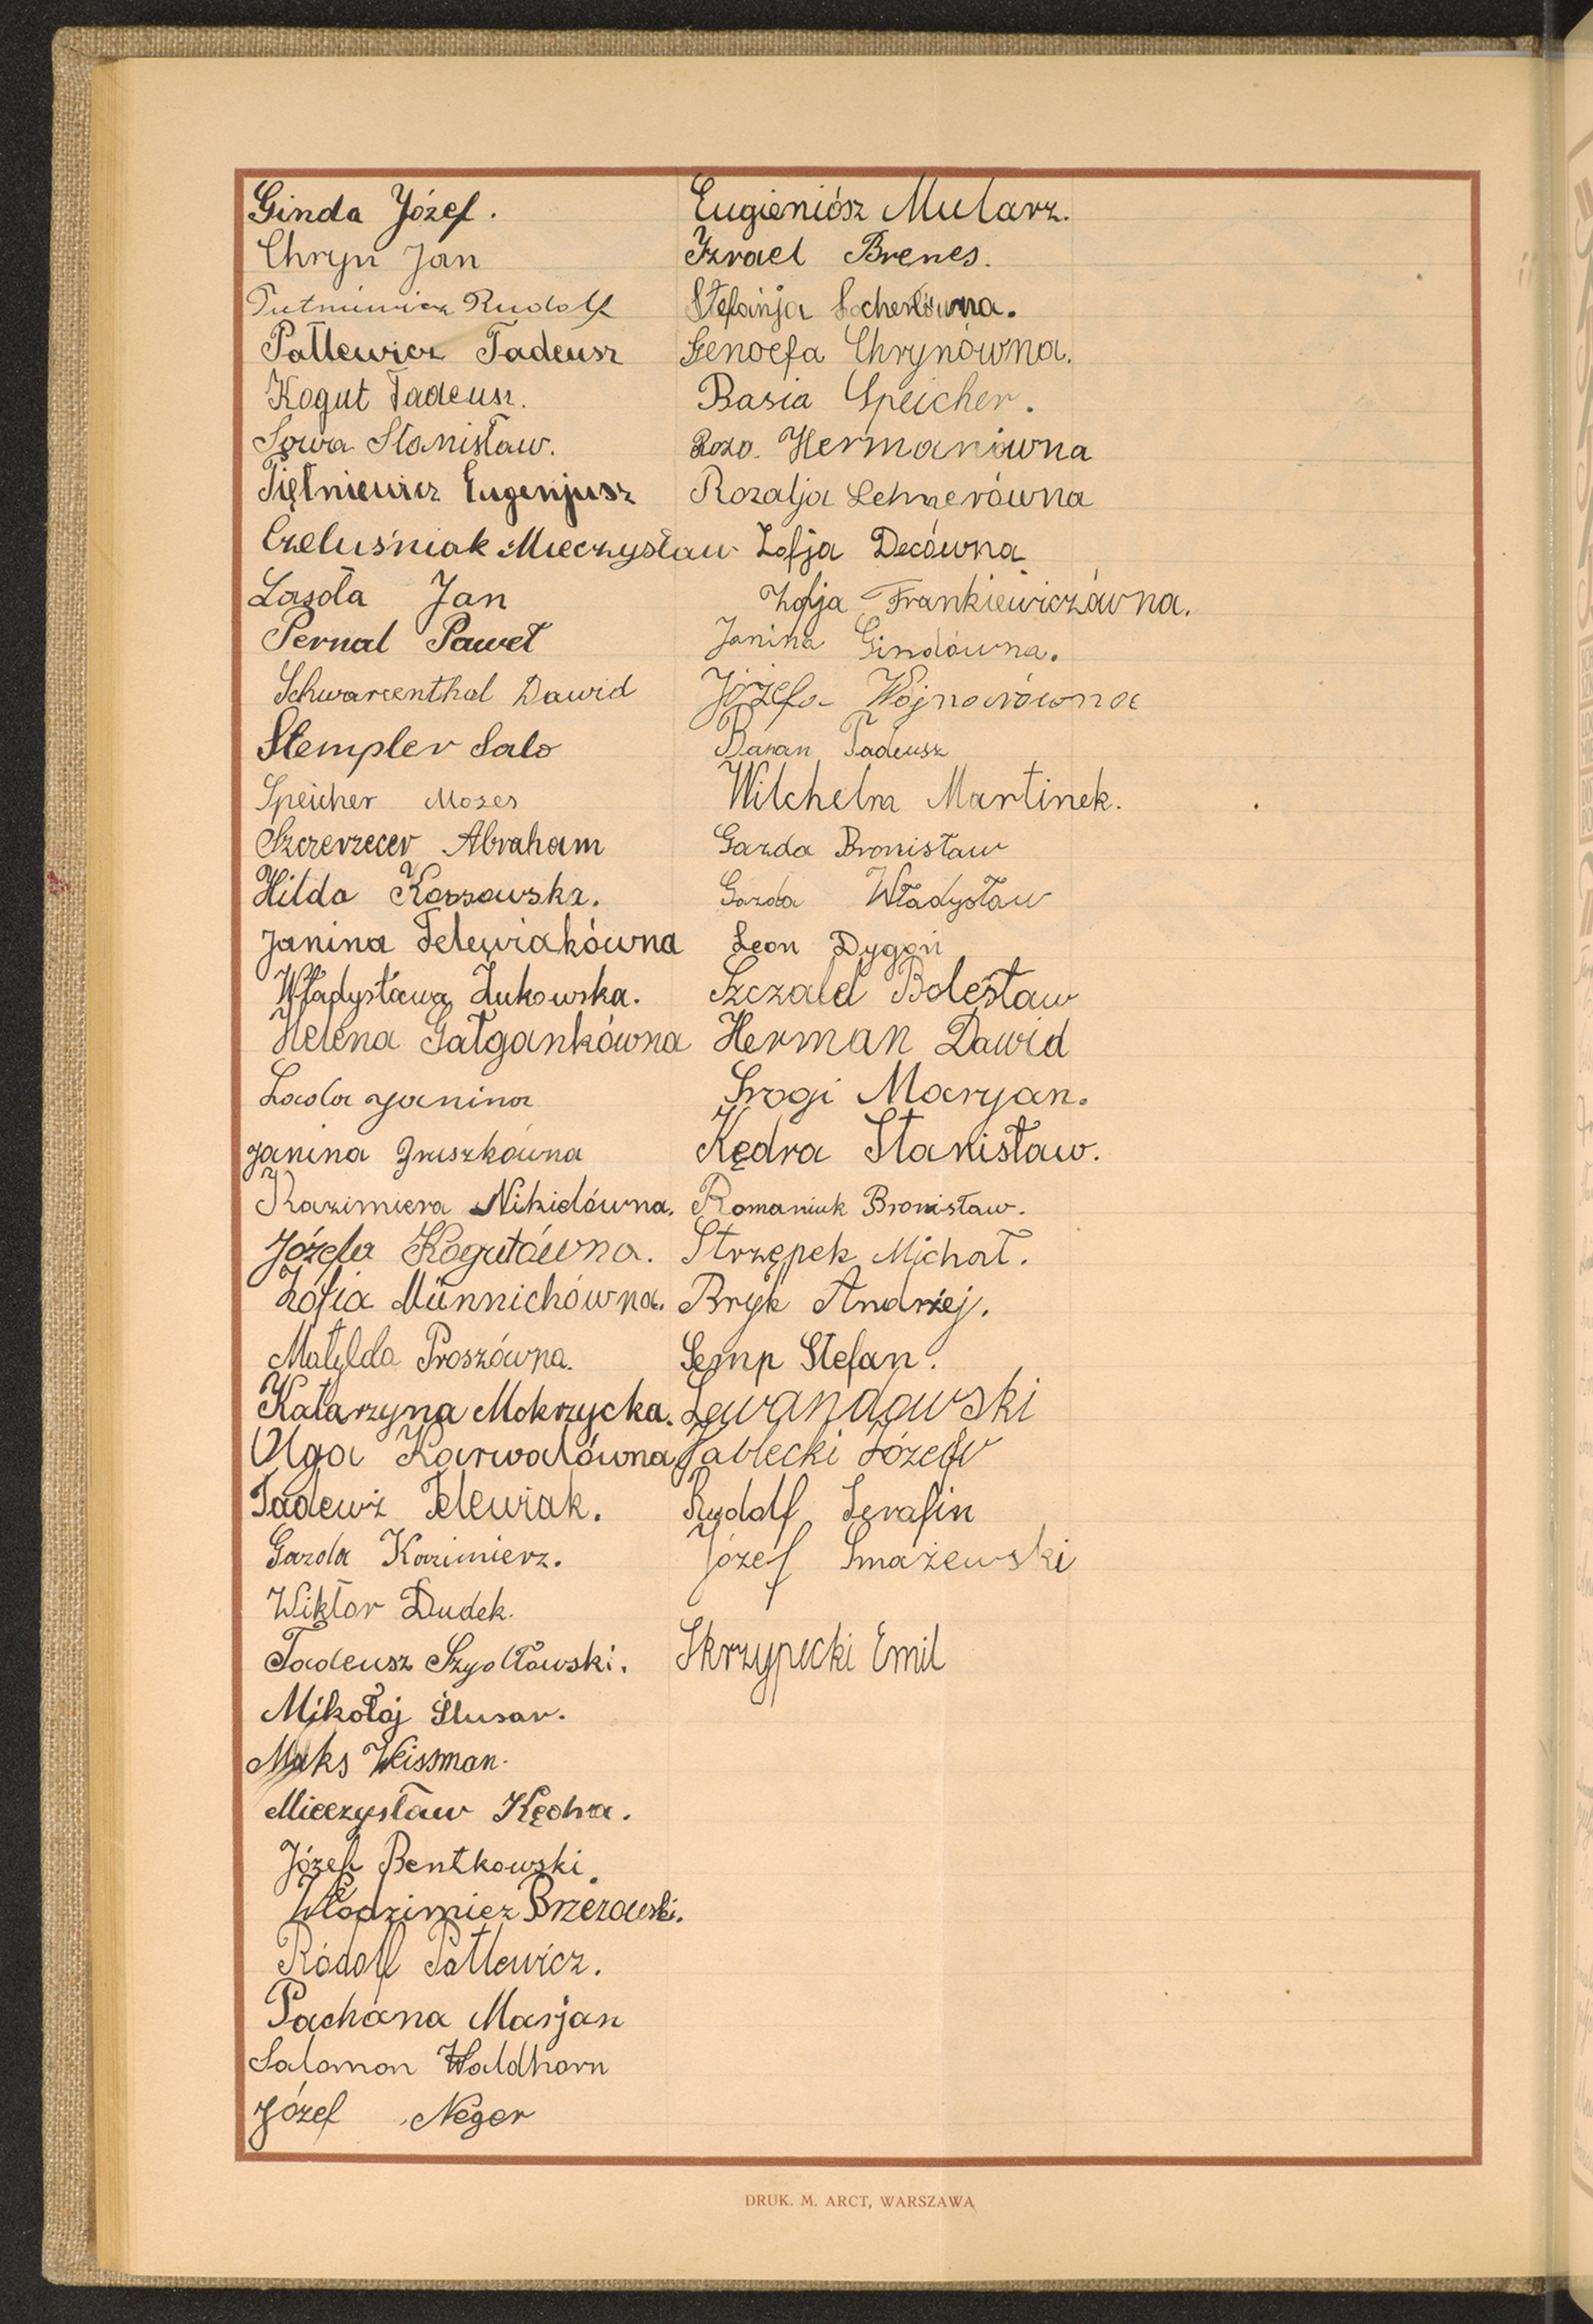 Ginda Józef.
Chryn Jan
Rudolf
Patlewicz Tadeusz
Kogut Tadeusz.
Sowa Stanisław.
Piętniewicz Eugenjusz
Czeluśniak Mieczysław
Lasota Jan
Pernal Paweł
Schwarcenthal Dawid
Stempler Salo
Speicher Mozes
Szczerzecer Abraham
Hilda Kossowska.
Janina Telewiakówna
Władysława Żukowska.
Helena Gałgankówna
Lada Janina
Janina Gruszkówna
Kazimiera Nikielówna.
Józefa Kogutówna.
Zofia Münnichówna.
Matylda Proszówna.
Katarzyna Mokrzycka.
Olga Karwatówna
Tadeuż Telewiak.
Gazda Kazimierz.
Wiktor Dudek.
Tadeusz Szydłowski.
Mikołaj Ślusar.
Maks Weissman.
Mieczysław Kędra.
Józef Bentkowski.
Włodzimierz Brzezowski.
Ródolf Patlewicz.
Pachana Marjan
Salomon Waldhorn
Józef Neger
Eugieniósz Mularz.
Izrael Brenes.
Stefanja
Genoefa Chrynówna.
Basia Speicher.
Roza. Hermanówna
Rozalja Lehnerówna
Zofja Decówna
Zofja Frankiewiczówna.
Janina Gindówna.
Józefa Wojnarówna
Baran Tadeusz
Wilchelm Martinek.
Gazda Bronisław
Gazda Władysław
Leon Dygoń
Szczald Bolesław
Herman Dawid
Srogi Maryan.
Kędra Stanisław.
Romaniuk Bronisław.
Strzępek Michał.
Bryk Andrzej.
Semp Stefan.
Lewandowski
Jabłecki Józef
Rudolf Serafin
Józef Smażewski
Skrzypecki Emil
DRUK. M. ARCT, WARSZAWA